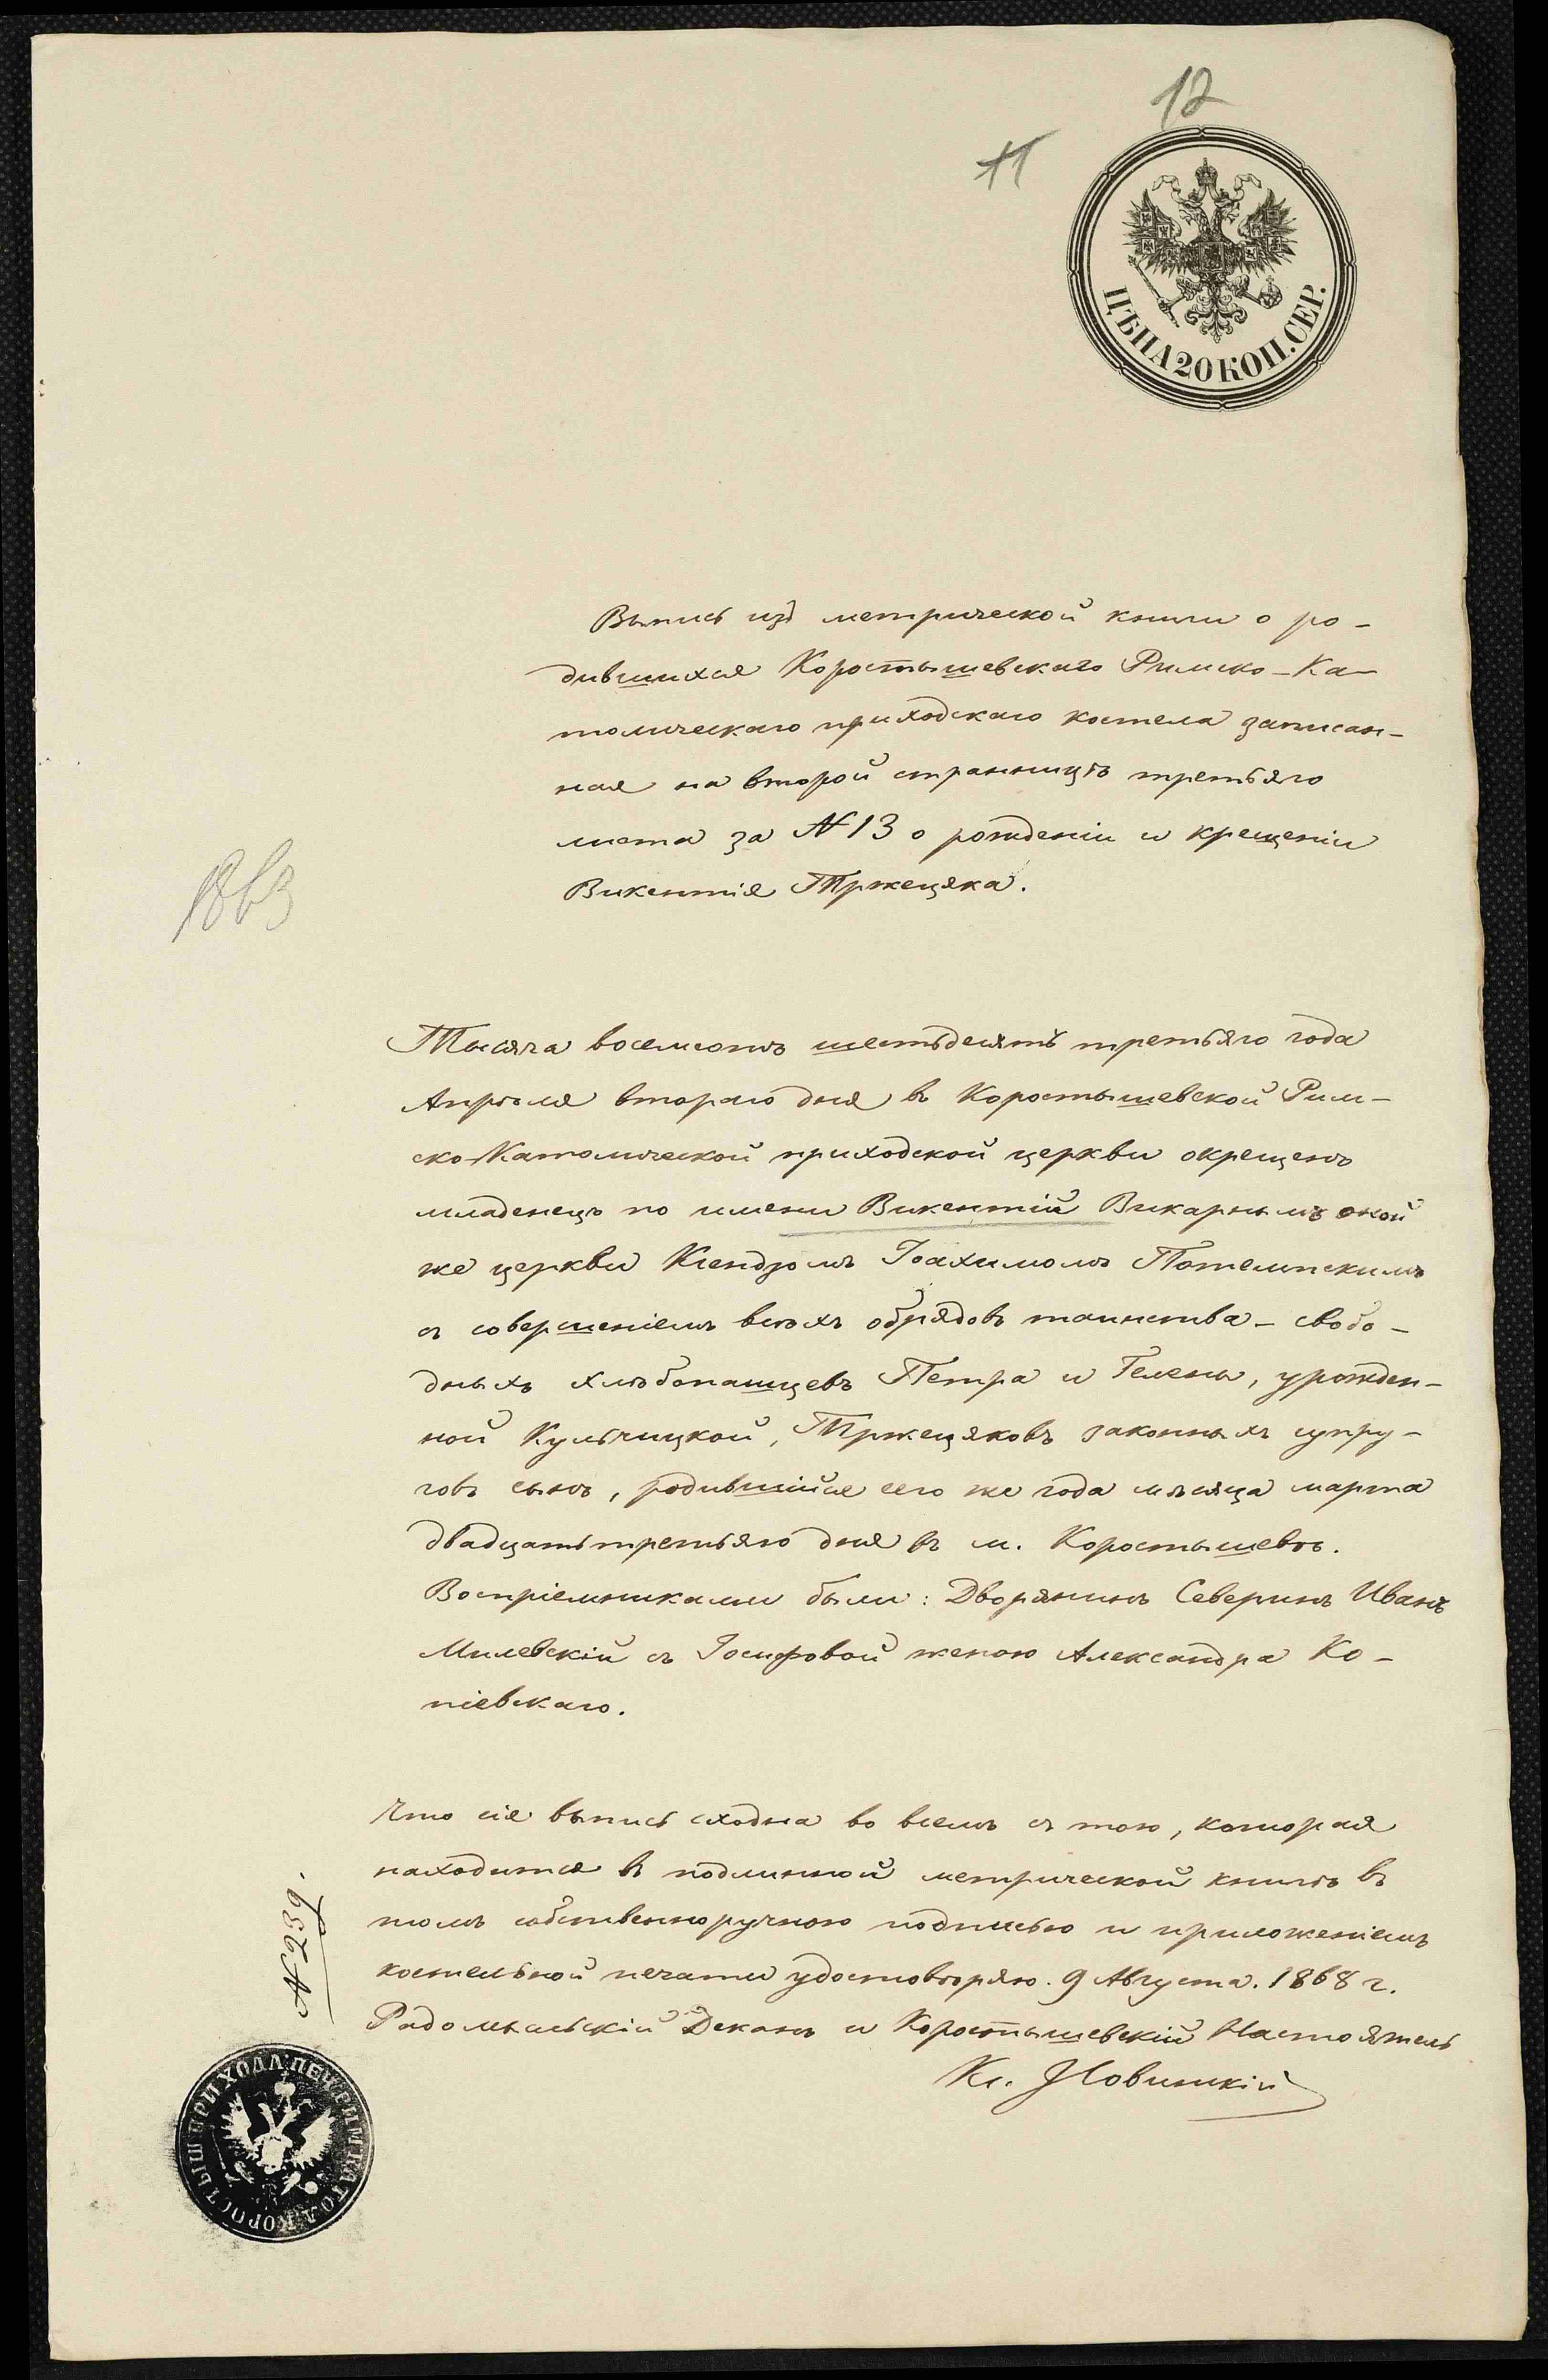 12
11
ЦѢНА 20 КОП. СЕР.
Выпись изъ метрической книги о ро-
дившихся Коростышевскаго Римско-Ка-
толическаго приходскаго костела записан-
ная на второй странницѣ третьяго
листа за № 13 о рожденіи и крещеніи
Викентія Тржецяка.
1863
Тысяча восемсотъ шестьдесятъ третьяго года
Апрѣля втораго дня въ Коростышевской Рим-
ско-Католической приходской церкви окрещенъ
младенецъ по имени Викентій Викарнымъ оной
же церкви Ксендзомъ Іоахимомъ Потемпскимъ
съ совершеніемъ всѣхъ обрядовъ таинства - свобо-
дныхъ хлѣбопашцевъ Петра и Гелены, урожден-
ной Кульчицкой, Тржецяковъ законныхъ супру-
говъ сынъ, родившійся сего же года мѣсяца марта
двадцатьтретьяго дня въ м. Коростышевѣ.
Воспріемниками были: Дворянинъ Северинъ Иванъ
Милевскій съ Іосифовой женою Александра Ко-
піевскаго.
Что сія выпись сходна во всемъ съ тою, которая
находится въ подлинной метрической книгѣ въ
томъ собственноручною подписью и приложеніемъ
костельной печати удостовѣряю. 9 Августа. 1868 г.
Радомысльскій Деканъ и Коростышевскій Настоятель
Кс. Новицкій
№ 239.
КОРОСТЫШ ПРИХОДА ПЕЧ РИМ КАТОЛ